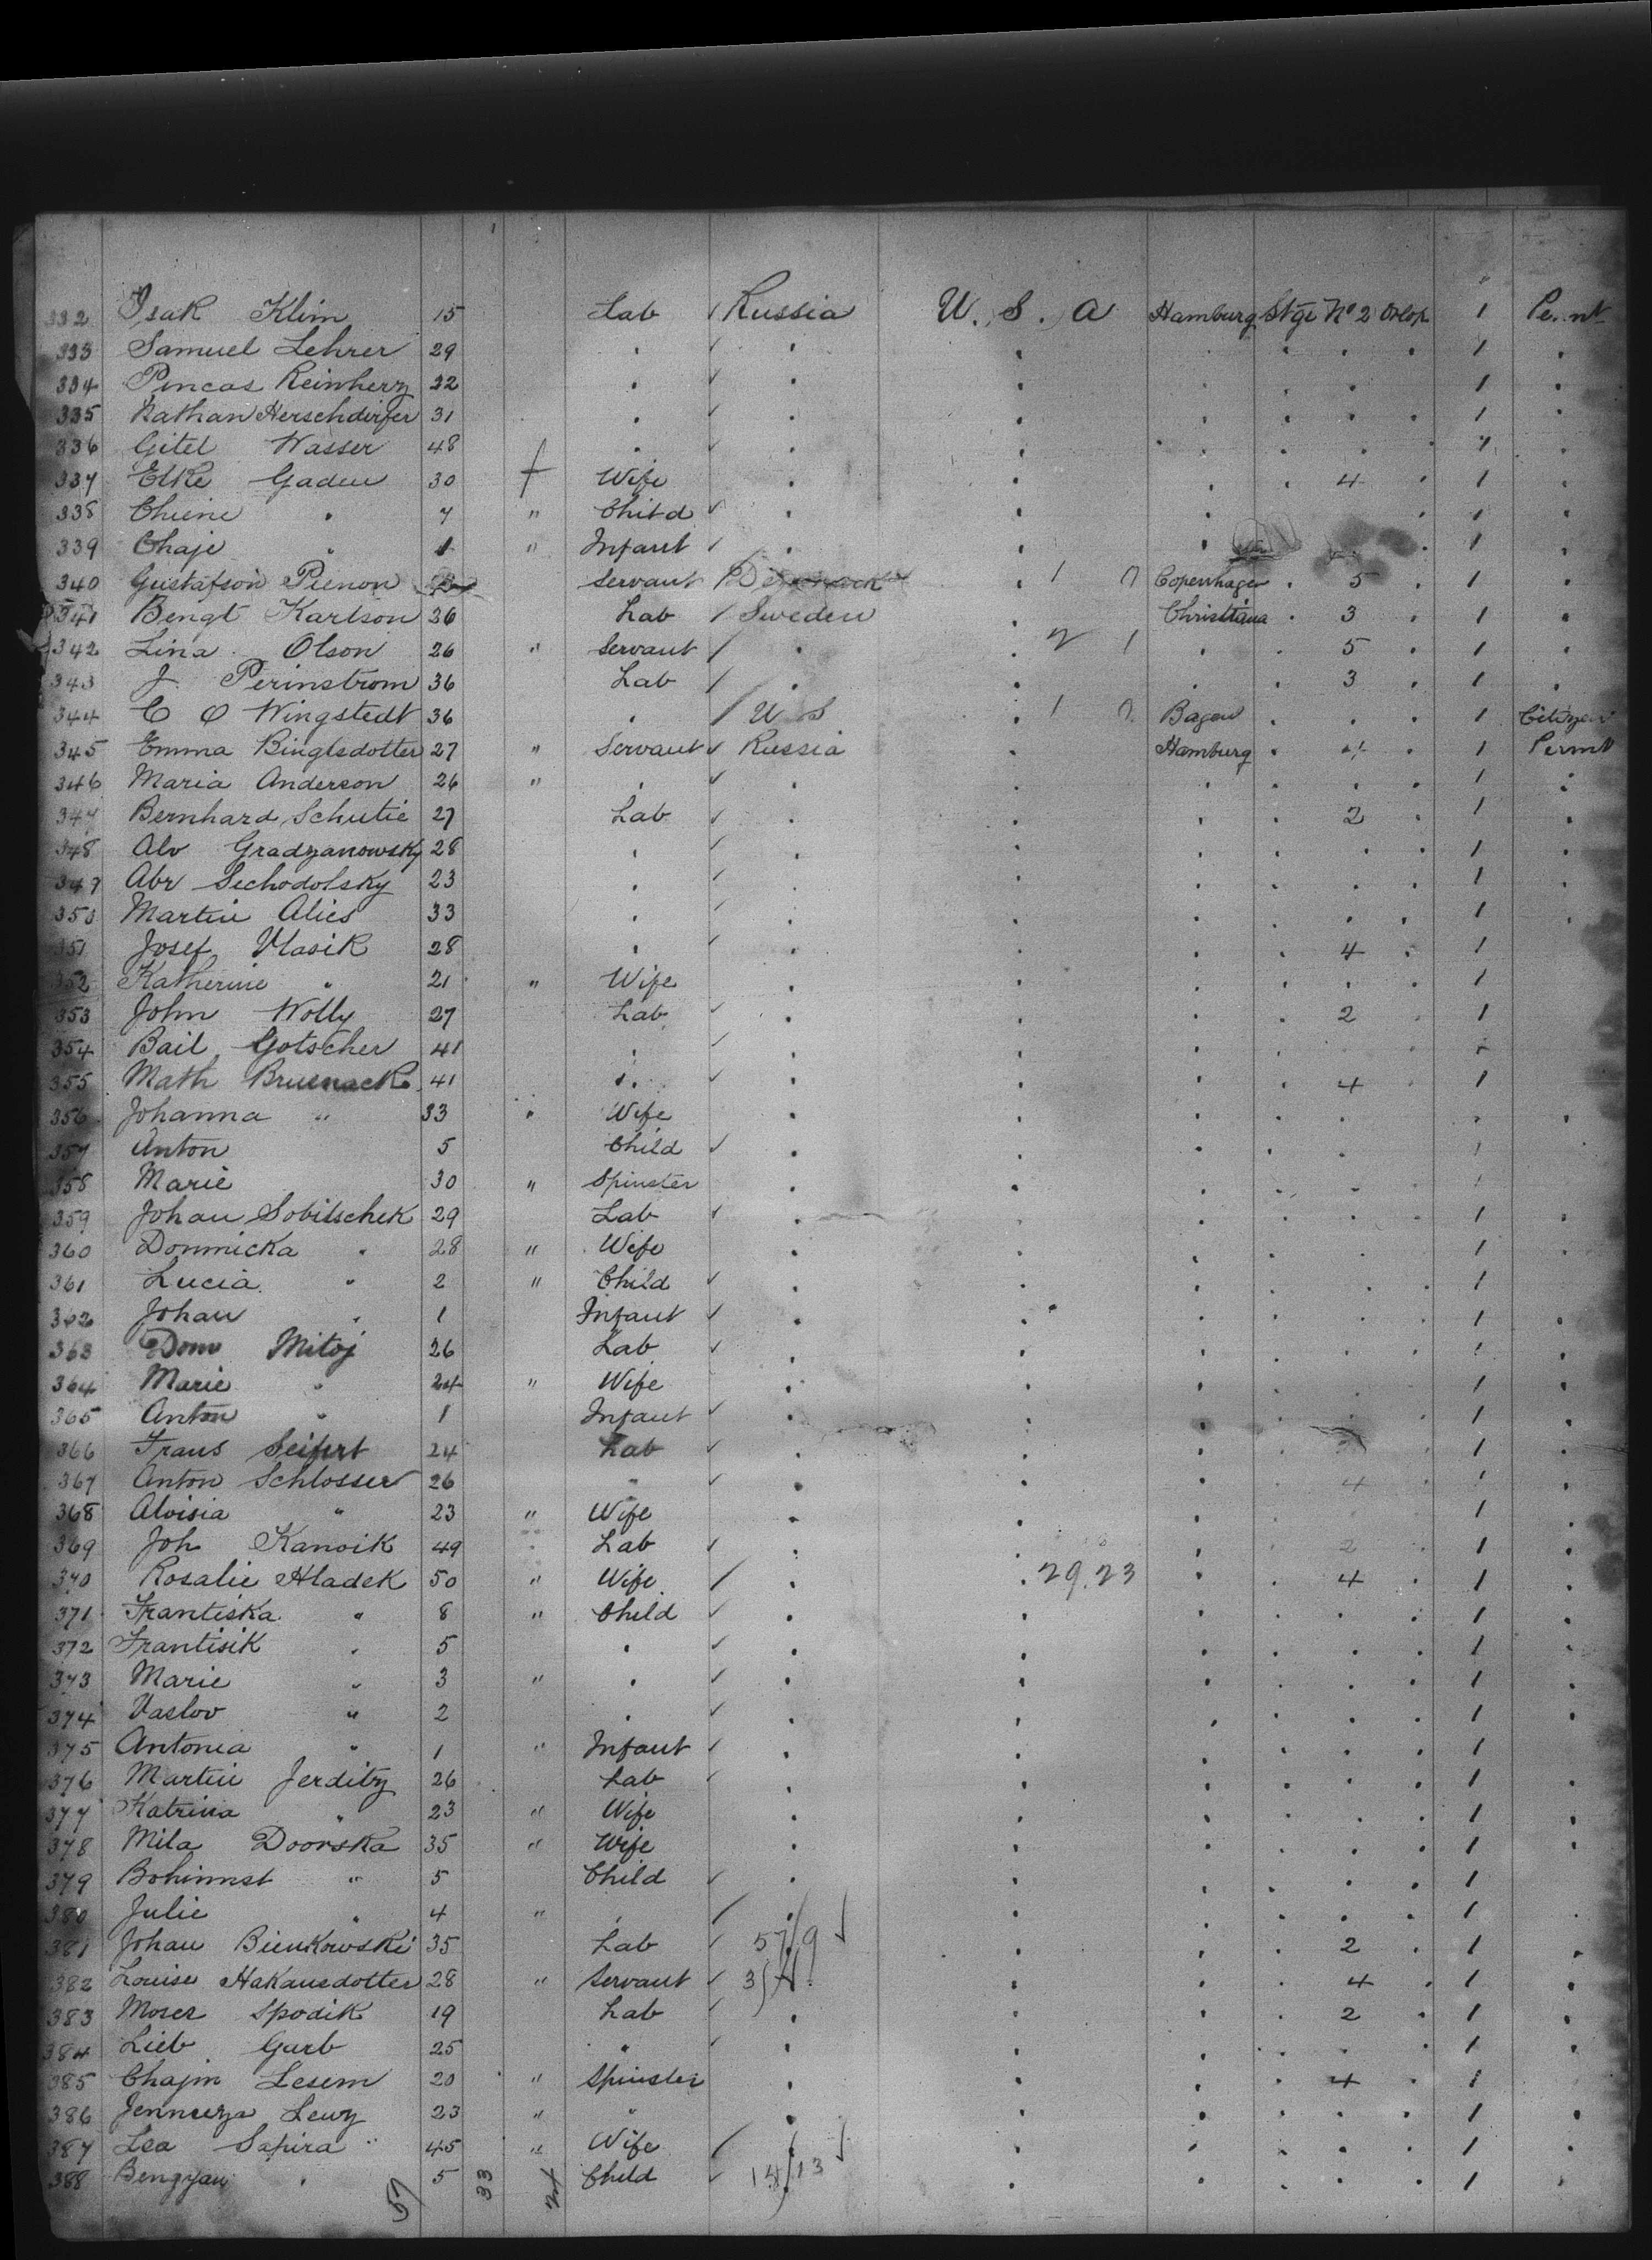 332 Isak Klim 15 Lab ✓ Russia U. S. A Hamburg Stge No 2 Orlop 1
333 Samuel Lehrer 29 . ✓ . . . . . . 1 .
334 Pincas Reinherz 32 . ✓ . . . . . . 1 .
335 Nathan Herschdirfer 31 . ✓ . . . . . . 1 .
336 Gitel Wasser 48 . ✓ . . . . . . 1 .
337 Elke Gaden 30 Wife . . . . 4 . 1 .
338 Chiene " 7 " Child ✓ . . . . 1 .
339 Chaje " 1 " Infant ✓ . . . . 1 .
340 Gustafson Pienon Servant / . 1 Copenhagen . 5 . 1 .
341 Bengt Karlson 36 Lab / Sweden . Christiana . 3 . 1 .
342 Lina Olson 26 " Servant / . . . . 5 . 1 .
343 J. Perinstrom 36 Lab / . . . . 3 . 1 .
344 C O Wingstedt 36 . / U S . 1 . . . 1 Citizen
345 Emma Binglsdotter 27 " Servant ✓ Russia . Hamburg . 4 . 1 Permt
346 Maria Anderson 26 " . ✓ . . . . . . 1 .
347 Bernhard Schutie 27 Lab ✓ . . . . 2 . 1 .
348 Alv Gradzanowsky 28 . ✓ . . . . . . 1 .
349 Abr Sechodolsky 23 . ✓ . . . . . . 1 .
350 Martin Alies 33 . ✓ . . . . . . 1 .
351 Josef Vlasik 28 . ✓ . . . . 4 . 1
352 Katherine " 21 " Wife . . . . . . 1
353 John Wolly 27 Lab ✓ . . . . 2 . 1
354 Bail Gotscher 41 . ✓ . . . . 1
355 Math Brusnack 41 . ✓ . . . . 4 . 1
356 Johanna " 33 " Wife . . . . . . .
357 Anton 5 Child ✓ . . . . . 1
358 Marie 30 " Spinster . . . . . . 1
359 Johan Sobitschek 29 Lab ✓ . . . . . . 1 .
360 Dominicka " 28 " Wife . . . . . 1 .
361 Lucia " 2 " Child ✓ . . . . . . 1
362 Johan " 1 Infant ✓ . . . . . . 1 .
363 Dom Mitoj 26 Lab ✓ . . . . . . 1 .
364 Marie " 24 " Wife . . . . . . 1 .
365 Anton " 1 Infant ✓ . . . . . . 1 .
366 Frans Seifert 24 Lab ✓ . . . . 2 . 1 .
367 Anton Schlosser 26 " ✓ . . . . 4 . 1 .
368 Aloisia " 23 " Wife . . . . . . 1 .
369 Joh Kanoik 49 Lab ✓ . . . . 2 . 1 .
370 Rosalie Hladek 50 " Wife / . . 29.23 . . 4 . 1 .
371 Frantiska " 8 " Child ✓ . . . . . . 1 .
372 Frantisik " 5 . ✓ . . . . . . 1 .
373 Marie " 3 " . ✓ . . . . . . 1 .
374 Vaslov " 2 . ✓ . . . . . . 1 .
375 Antonia " 1 " Infant ✓ . . . . . . 1
376 Martin Jerditz 26 Lab ✓ . . . . . . 1 .
377 Katrina " 23 " Wife . . . . . . 1 .
378 Mila Doorska 35 " Wife . . . . . . 1 .
379 Bohimnst " 5 Child ✓ . . . . . . 1
380 Julie " 4 " . / . . . . . . 1 .
381 Johan Bienkowski 35 Lab ✓ 57/9 . . . 2 . 1 .
382 Louise Hakansdotter 28 " Servant ✓ . . . 4 . 1 .
383 Moser Spodik 19 Lab ✓ . . . . 2 . 1 .
384 Lieb Gurb 25 " ✓ . . . . . . 1 .
385 Chajm Lesem 20 " Spinster . . . . 4 . 1
386 Lewz 23 " " . . . . . . 1 .
387 Lea Sapira 45 " Wife / . . . . . . 1 .
388 Bengyan " 5 Child ✓ 14/13 . . . . . 1 .
57 33 24